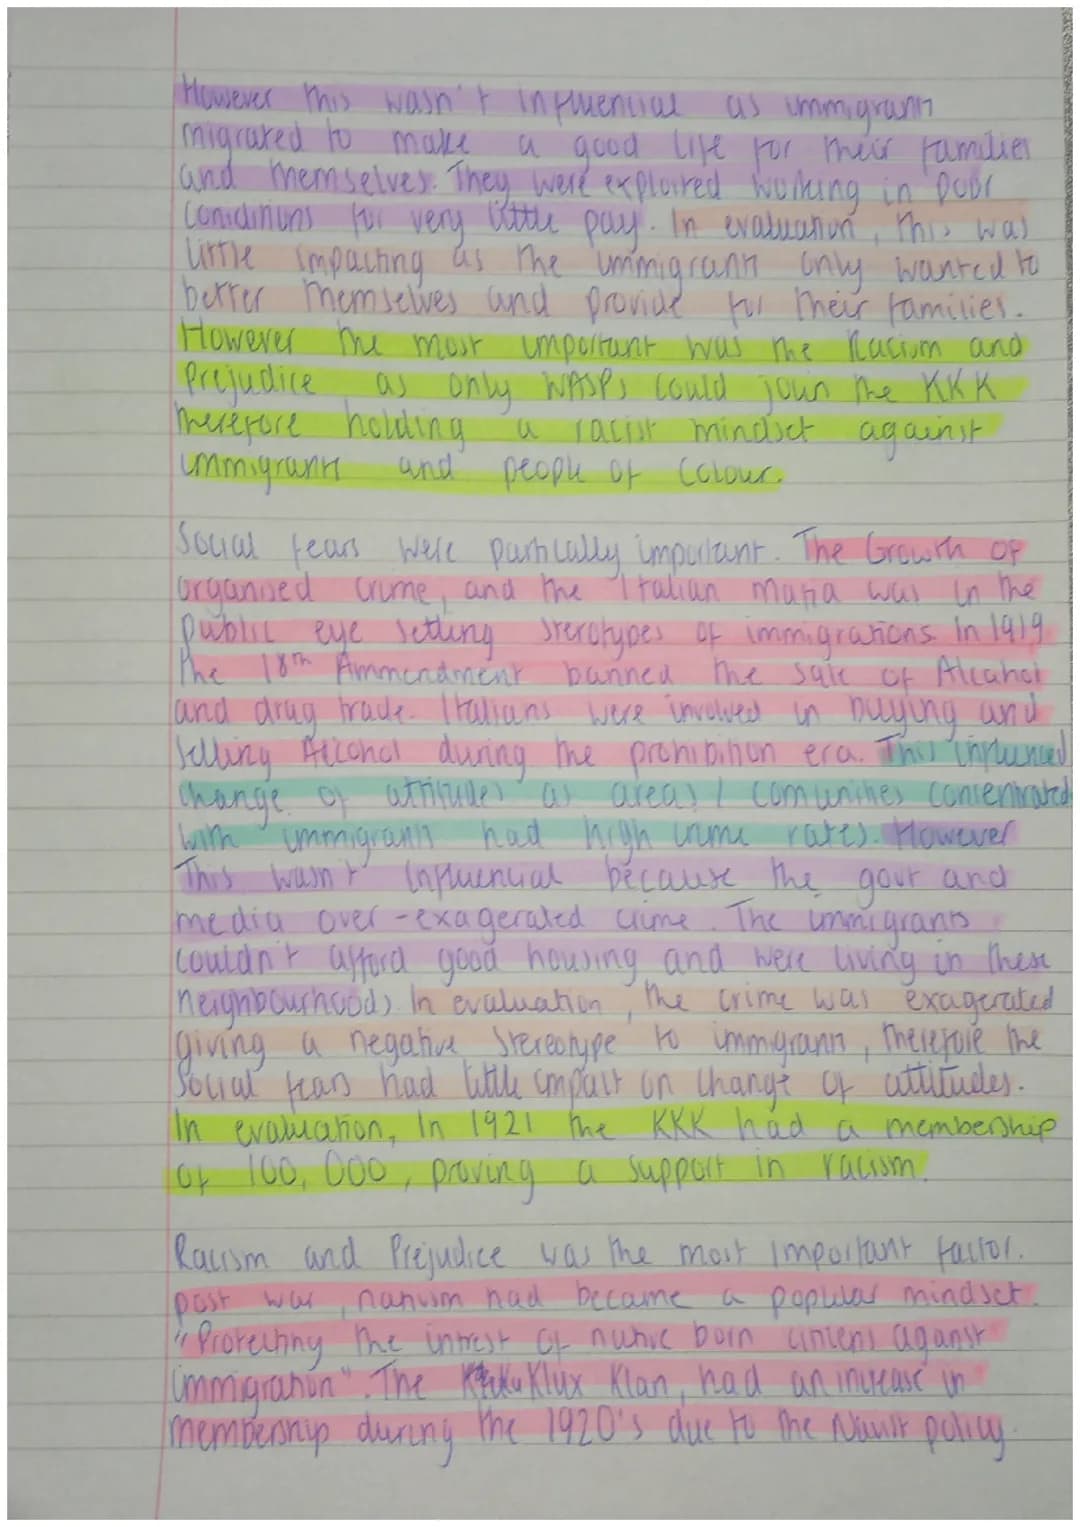 However this wasn't influencial as immigrants
migrated to make a good life for their families
and themselves. They were exploited working in poor
conditions for very little pay. In evaluation, this was
little impacting as the immigrants only wanted to
better themselves and provide for their families.
However the most important was the Racism and
Prejudice as only WASPs could join the KKK
therefore holding a racist mindset against
immigrants and people of colour.
Social fears were partically important. The Growth of
organised crime, and the Italian mafia was in the
public eye setting sterotypes of immigrations. In 1919
the 18th Ammendment banned the sale of Alcahol
and drug trade. Italians were involved in buying and
selling Alcohol during the prohibition era. This influenced
change of attitudes as areas / comunities concentrated
with immigrants had high crime rates. However
This wasn't influencial because the govt and
media over-exagerated crime. The immigrants
couldn't afford good housing and were living in these
neighbourhoods. In evaluation, the crime was exagerated
giving a negative stereotype to immigrants, therefore the
social fears had little impact on change of attitudes.
In evaluation, In 1921 the KKK had a membership
of 100,000, proving a support in racism.
Racism and Prejudice was the most important factor.
post war, nativism had became a popular mindset.
"Protecting the intrest of native born citizens against
immigration". The Ku Klux Klan, had an increase in
membership during the 1920's due to the Nativist policy.